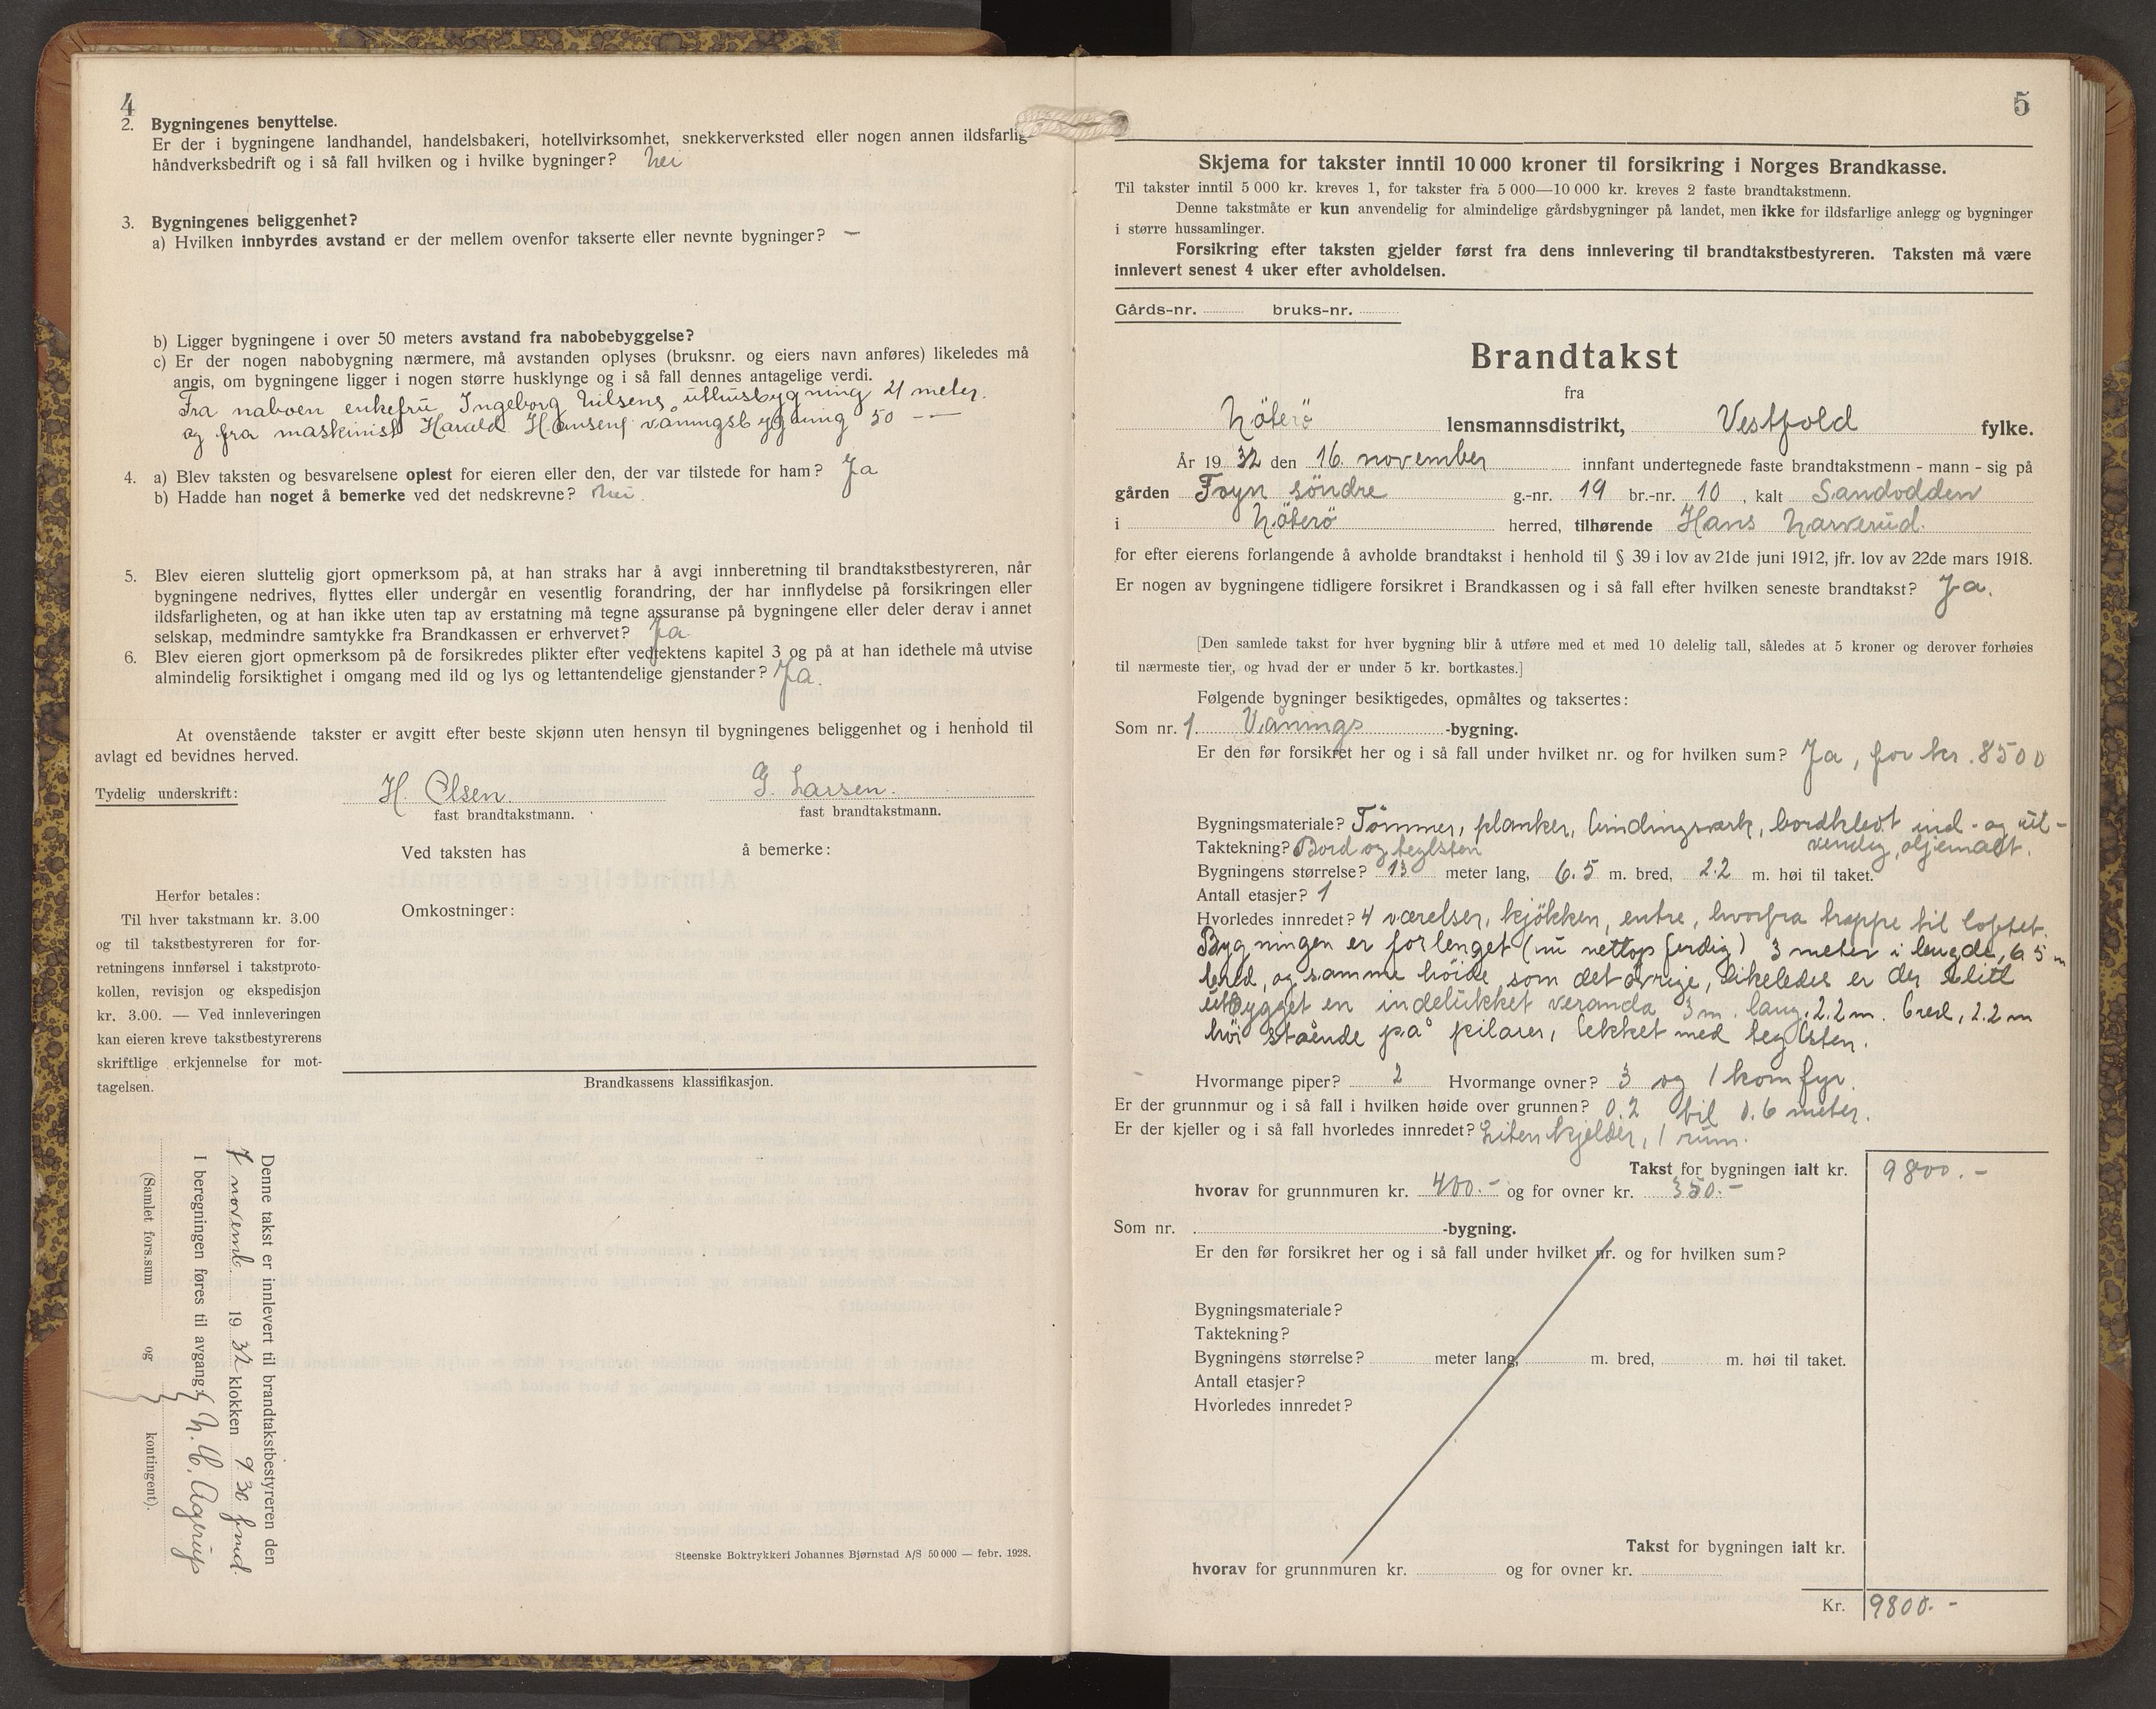 4
2. Bygningenes benyttelse.
Er der i bygningene landhandel, handelsbakeri, hotellvirksomhet, snekkerverksted eller nogen annen ildsfarlig
håndverksbedrift og i så fall hvilken og i hvilke bygninger? Nei
3. Bygningenes beliggenhet?
a) Hvilken innbyrdes avstand er der mellem ovenfor takserte eller nevnte bygninger? —
b) Ligger bygningene i over 50 meters avstand fra nabobebyggelse?
c) Er der nogen nabobygning nærmere, må avstanden oplyses (bruksnr. og eiers navn anføres) likeledes må
angis, om bygningene ligger i nogen større husklynge og i så fall dennes antagelige verdi.
Fra naboen enkefru Ingeborg Nilsens uthusbygning 21 meter.
og fra maskinist Harald Hansens våningsbygning 50 — —
4. a) Blev taksten og besvarelsene oplest for eieren eller den, der var tilstede for ham? Ja
b) Hadde han noget å bemerke ved det nedskrevne? Nei.
5. Blev eieren sluttelig gjort opmerksom på, at han straks har å avgi innberetning til brandtakstbestyreren, når
bygningene nedrives, flyttes eller undergår en vesentlig forandring, der har innflydelse på forsikringen eller
ildsfarligheten, og at han ikke uten tap av erstatning må tegne assuranse på bygningene eller deler derav i annet
selskap, medmindre samtykke fra Brandkassen er erhvervet? Ja
6. Blev eieren gjort opmerksom på de forsikredes plikter efter vedtektens kapitel 3 og på at han idethele må utvise
almindelig forsiktighet i omgang med ild og lys og lettantendelige gjenstander? Ja.
At ovenstående takster er avgitt efter beste skjønn uten hensyn til bygningenes beliggenhet og i henhold til
avlagt ed bevidnes herved.
Tydelig underskrift: H. Olsen. G. Larsen.
fast brandtakstmann. fast brandtakstmann.
Ved taksten has å bemerke:
Omkostninger:
Herfor betales:
Til hver takstmann kr. 3.00
og til takstbestyreren for for-
retningens innførsel i takstproto-
kollen, revisjon og ekspedisjon
kr. 3.00. — Ved innleveringen
kan eieren kreve takstbestyrerens
skriftlige erkjennelse for mot-
tagelsen.
Brandkassens klassifikasjon.
Denne takst er innlevert til brandtakstbestyreren den
7 novemb. 1932 klokken 9.30 fmd.
I beregningen føres til avgang: N. C. Agerup
(Samlet fors.sum og kontingent).
Steenske Boktrykkeri Johannes Bjørnstad A/S 50 000 — febr. 1928.
5
Skjema for takster inntil 10 000 kroner til forsikring i Norges Brandkasse.
Til takster inntil 5 000 kr. kreves 1, for takster fra 5 000—10 000 kr. kreves 2 faste brandtakstmenn.
Denne takstmåte er kun anvendelig for almindelige gårdsbygninger på landet, men ikke for ildsfarlige anlegg og bygninger
i større hussamlinger.
Forsikring efter taksten gjelder først fra dens innlevering til brandtakstbestyreren. Taksten må være
innlevert senest 4 uker efter avholdelsen.
Gårds-nr. bruks-nr.
Brandtakst
fra
Nöterö lensmannsdistrikt, Vestfold fylke.
År 1932 den 16. november innfant undertegnede faste brandtakstmenn - mann - sig på
gården Foyn söndre g.-nr. 19 br.-nr. 10, kalt Sandodden
i Nöterö herred, tilhørende Hans Narverud.
for efter eierens forlangende å avholde brandtakst i henhold til § 39 i lov av 21de juni 1912, jfr. lov av 22de mars 1918.
Er nogen av bygningene tidligere forsikret i Brandkassen og i så fall efter hvilken seneste brandtakst? Ja.
[Den samlede takst for hver bygning blir å utføre med et med 10 delelig tall, således at 5 kroner og derover forhøies
til nærmeste tier, og hvad der er under 5 kr. bortkastes.]
Følgende bygninger besiktigedes, opmåltes og taksertes:
Som nr. 1. Vånings -bygning.
Er den før forsikret her og i så fall under hvilket nr. og for hvilken sum? Ja, for kr. 8500
Bygningsmateriale? Tömmer, planker, bindingsverk, bordkledt ind- og ut-
Taktekning? Bord og teglsten vendig, oljemalt.
Bygningens størrelse? 13 meter lang, 6.5 m. bred, 2.2 m. høi til taket.
Antall etasjer? 1
Hvorledes innredet? 4 værelser, kjökken, entre, hvorfra trappe til loftet.
Bygningen er forlenget (nu nettop ferdig) 3 meter i lengde, 6.5 m
bred, og samme höide som det övrige, likeledes er der blitt
utbygget en indelukket veranda 3 m. lang, 2.2 m. bred, 2.2 m
höi stående på pilarer, tekket med teglsten.
Hvormange piper? 2 Hvormange ovner? 3 og 1 komfyr.
Er der grunnmur og i så fall i hvilken høide over grunnen? 0.2 til 0.6 meter.
Er der kjeller og i så fall hvorledes innredet? Liten kjelder, 1 rum.
Takst for bygningen ialt kr. 9800.-
hvorav for grunnmuren kr. 400.- og for ovner kr. 350.-
Som nr. -bygning.
Er den før forsikret her og i så fall under hvilket nr. og for hvilken sum?
Bygningsmateriale?
Taktekning?
Bygningens størrelse? meter lang, m. bred, m. høi til taket.
Antall etasjer?
Hvorledes innredet?
Takst for bygningen ialt kr.
hvorav for grunnmuren kr. og for ovner kr.
Kr. 9800.-